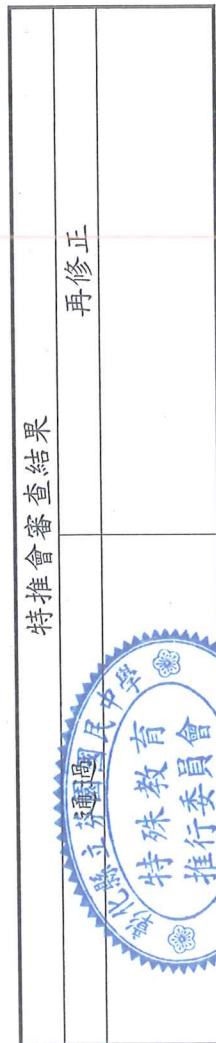 特推會審查結果
通過
再修正
彰化縣立芬園國民中學
特殊教育
推行委員會